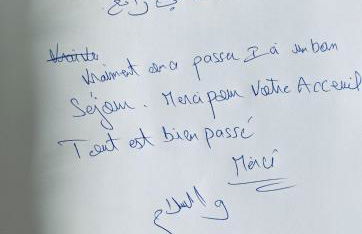 رائع.
Vraiment on a passer Ià un bon
Séjour. Merci pour Votre Acceuil
Tout est bien passé
Merci
و السلام